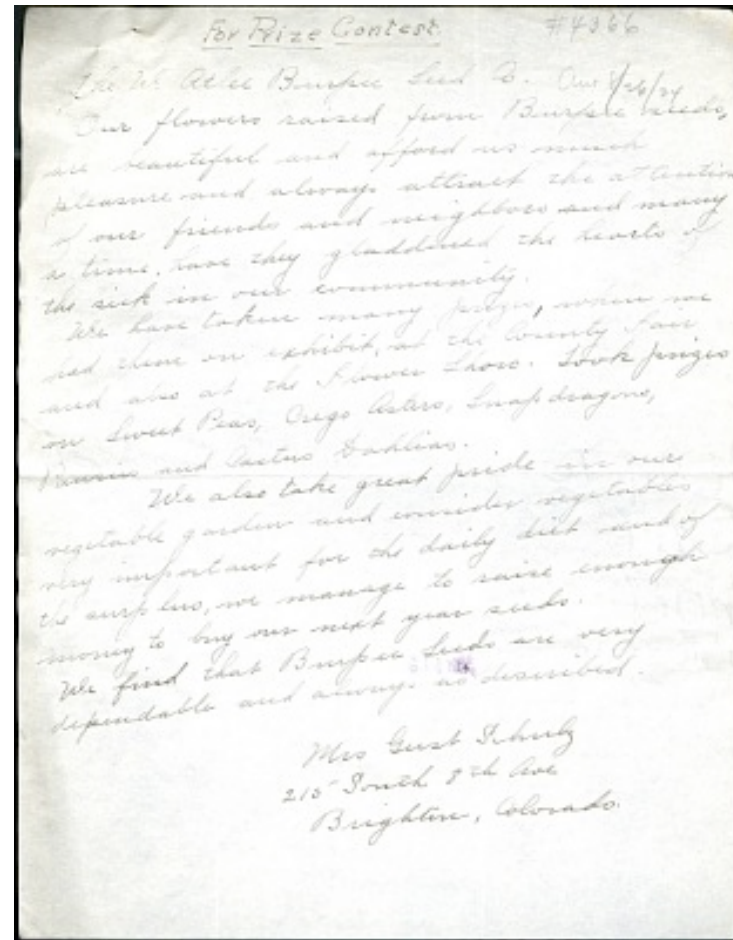 For Prize Contest. #4366
The W. Atlee Burpee Seed Co.
Our flowers raised from Burpee seeds,
are beautiful and afford us much
pleasure and always attract the attention
of our friends and neighbors and many
a time, have they gladdened the hearts of
the sick in our community.
We have taken many prizes, when we
had them on exhibit, at the County Fair
and also at the Flower Show. Took prizes
on Sweet Peas, Crego Asters, Snapdragons,
and Cactus Dahlias.
We also take great pride in our
vegetable garden and consider vegetables
very important for the daily diet and of
the surplus, we manage to raise enough
money to buy our next year seeds.
We find that Burpee Seeds are very
dependable and always as described.
Mrs Gust Schulz
215 South 8th Ave
Brighton, Colorado.